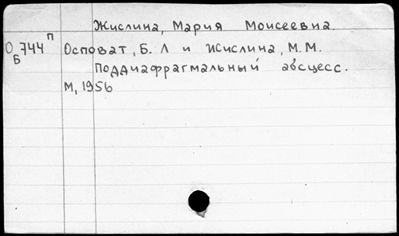 Жислина, Мария Моисеевна.
О 744 П Б
Осповат, Б. Л и Жислина, М. М.
Поддиафрагмальный абсцесс.
М, 1956